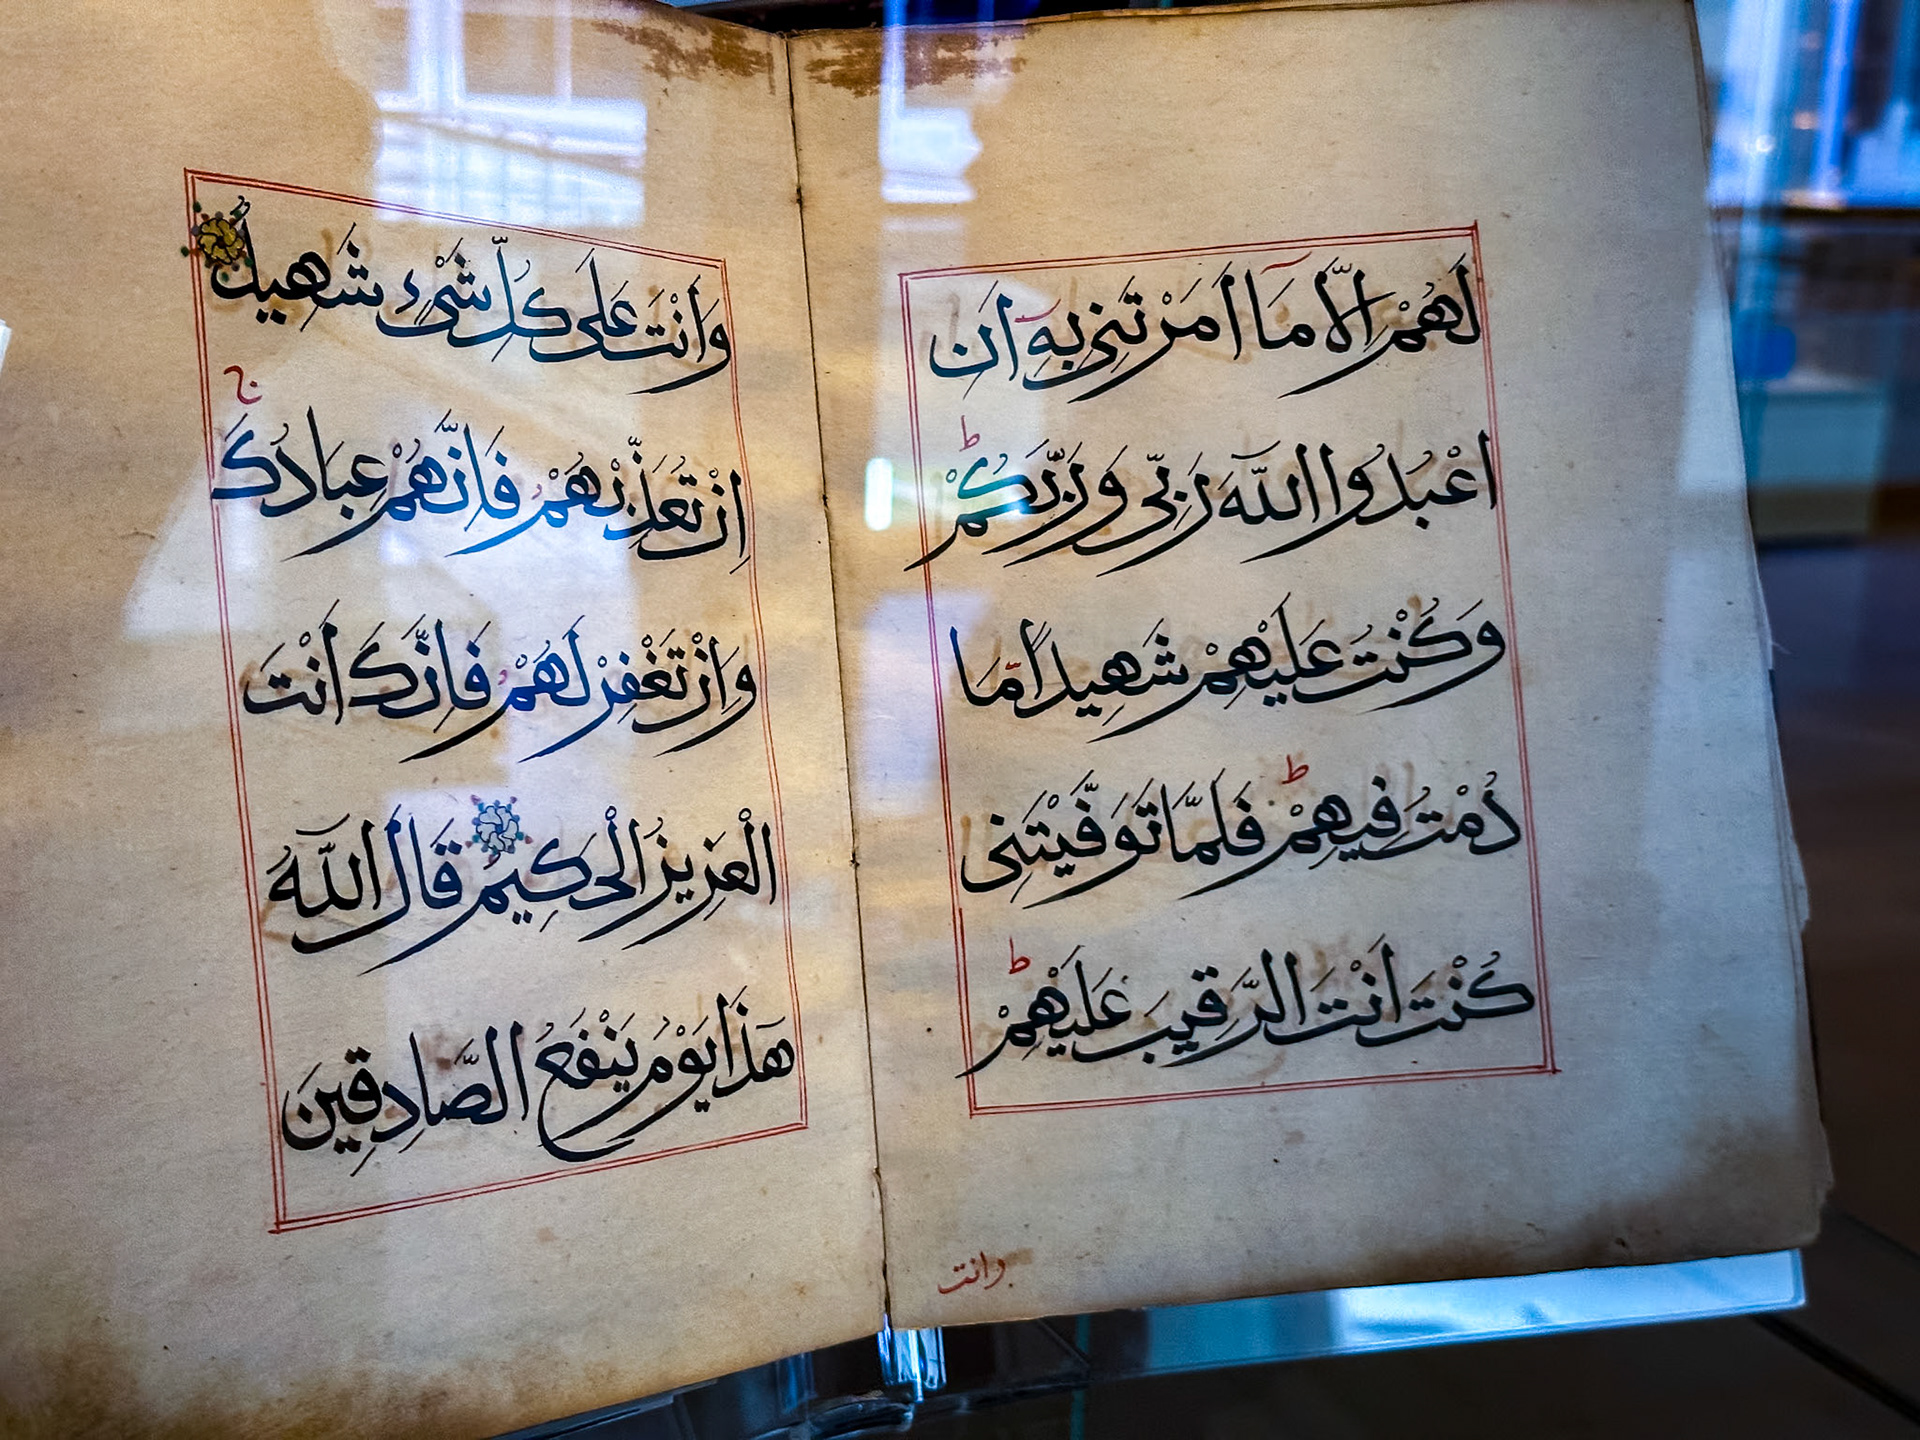 لَهُمْ اِلَّا مَآ اَمَرْتَنِى بِهٖٓ اَنِ
اعْبُدُوا اللّٰهَ رَبِّى وَرَبَّكُمْ ط
وَكُنْتُ عَلَيْهِمْ شَهِيدًا مَّا
دُمْتُ فِيهِمْ ط فَلَمَّا تَوَفَّيْتَنِى
كُنْتَ اَنْتَ الرَّقِيبَ عَلَيْهِمْ ط
وانت
وَاَنْتَ عَلٰى كُلِّ شَىْءٍ شَهِيدٌ
اِنْ تُعَذِّبْهُمْ فَاِنَّهُمْ عِبَادُكَ ج
وَاِنْ تَغْفِرْ لَهُمْ فَاِنَّكَ اَنْتَ
الْعَزِيزُ الْحَكِيمُ قَالَ اللّٰهُ
هٰذَا يَوْمُ يَنْفَعُ الصَّادِقِينَ